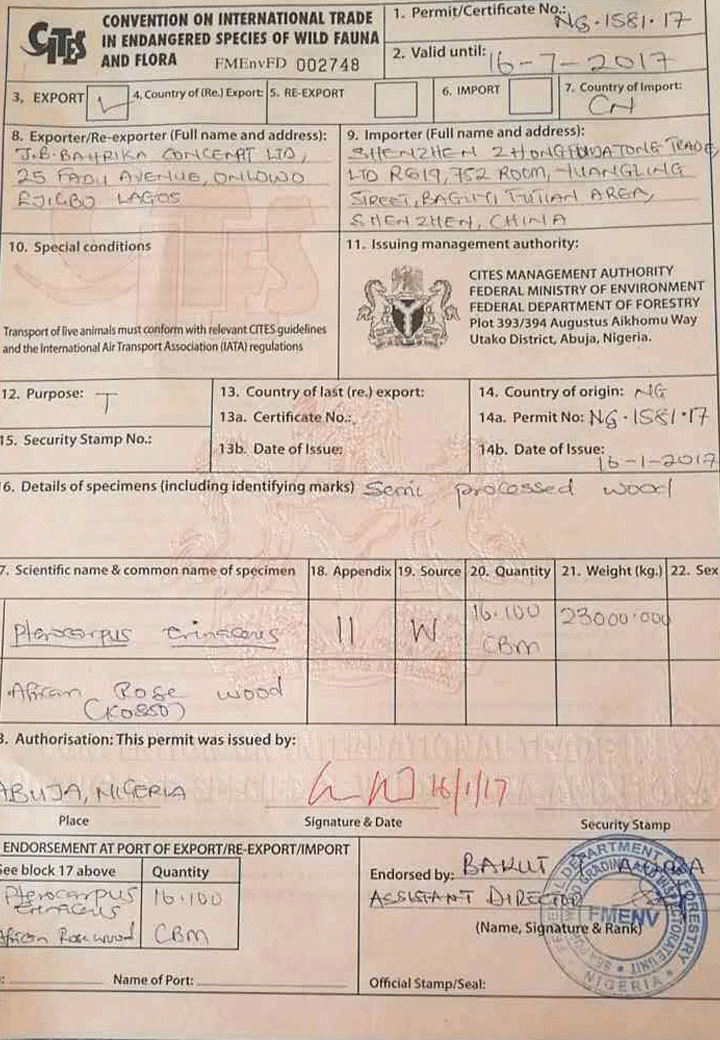 CITES
CONVENTION ON INTERNATIONAL TRADE
IN ENDANGERED SPECIES OF WILD FAUNA
AND FLORA FMEnvFD 002748
1. Permit/Certificate No.: NG.1581.17
2. Valid until: 16-7-2017
3, EXPORT
4. Country of (Re.) Export:
5. RE-EXPORT
6. IMPORT
7. Country of Import:
CN
8. Exporter/Re-exporter (Full name and address):
J.B. BAHRIKA CONCEPT LTD,
25 FADU AVENUE, ONLOWO
EJIGBO LAGOS
9. Importer (Full name and address):
SHENZHEN TRADE
LTD R619, 752 ROOM, HUANGLING
STREET, AREA,
SHENZHEN, CHINA
10. Special conditions
Transport of live animals must conform with relevant CITES guidelines
and the International Air Transport Association (IATA) regulations
11. Issuing management authority:
CITES MANAGEMENT AUTHORITY
FEDERAL MINISTRY OF ENVIRONMENT
FEDERAL DEPARTMENT OF FORESTRY
Plot 393/394 Augustus Aikhomu Way
Utako District, Abuja, Nigeria.
12. Purpose: T
13. Country of last (re.) export:
13a. Certificate No.:
13b. Date of Issue:
14. Country of origin: NG
14a. Permit No: NG.1581.17
14b. Date of Issue:
16-1-2017
15. Security Stamp No.:
6. Details of specimens (including identifying marks) Semi processed wood
7. Scientific name & common name of specimen
18. Appendix
19. Source
20. Quantity
21. Weight (kg.)
22. Sex
Pterocarpus erinaceus
II
W
16.100
CBM
23000.000
African Rose wood
(KOSSO)
3. Authorisation: This permit was issued by:
ABUJA, NIGERIA
16/1/17
Place
Signature & Date
Security Stamp
ENDORSEMENT AT PORT OF EXPORT/RE-EXPORT/IMPORT
See block 17 above
Quantity
Pterocarpus
erinaceus
16.100
African Rosewood
CBM
Name of Port:
Endorsed by: BAKUT
ASSISTANT DIRECTOR
(Name, Signature & Rank)
Official Stamp/Seal:
FEDERAL DEPARTMENT OF FORESTRY
FMENV
NIGERIA